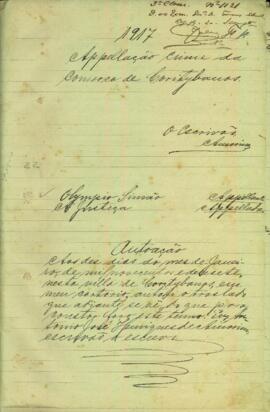 1917
Appellação crime da
comarca de Coritybanos.
O Escrivão
Amorim
Olympio Simão Appellante
A Justiça Appellada
Autoação
Aos dez dias do mez de Janei-
ro, de mil novecentos e dezesete,
nesta villa de Coritybanos, em
meu cartorio, autoei o traslado
que adiante se vê; do que para
constar faço este termo. Eu, An-
tonio José Henriques de Amorim,
escrivão, o escrevi.